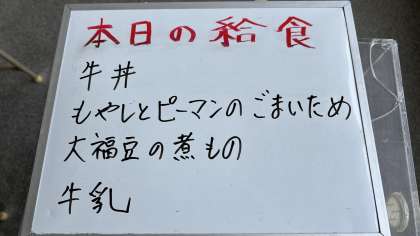 本日の給食
牛丼
もやしとピーマンのごまいため
大福豆の煮もの
牛乳